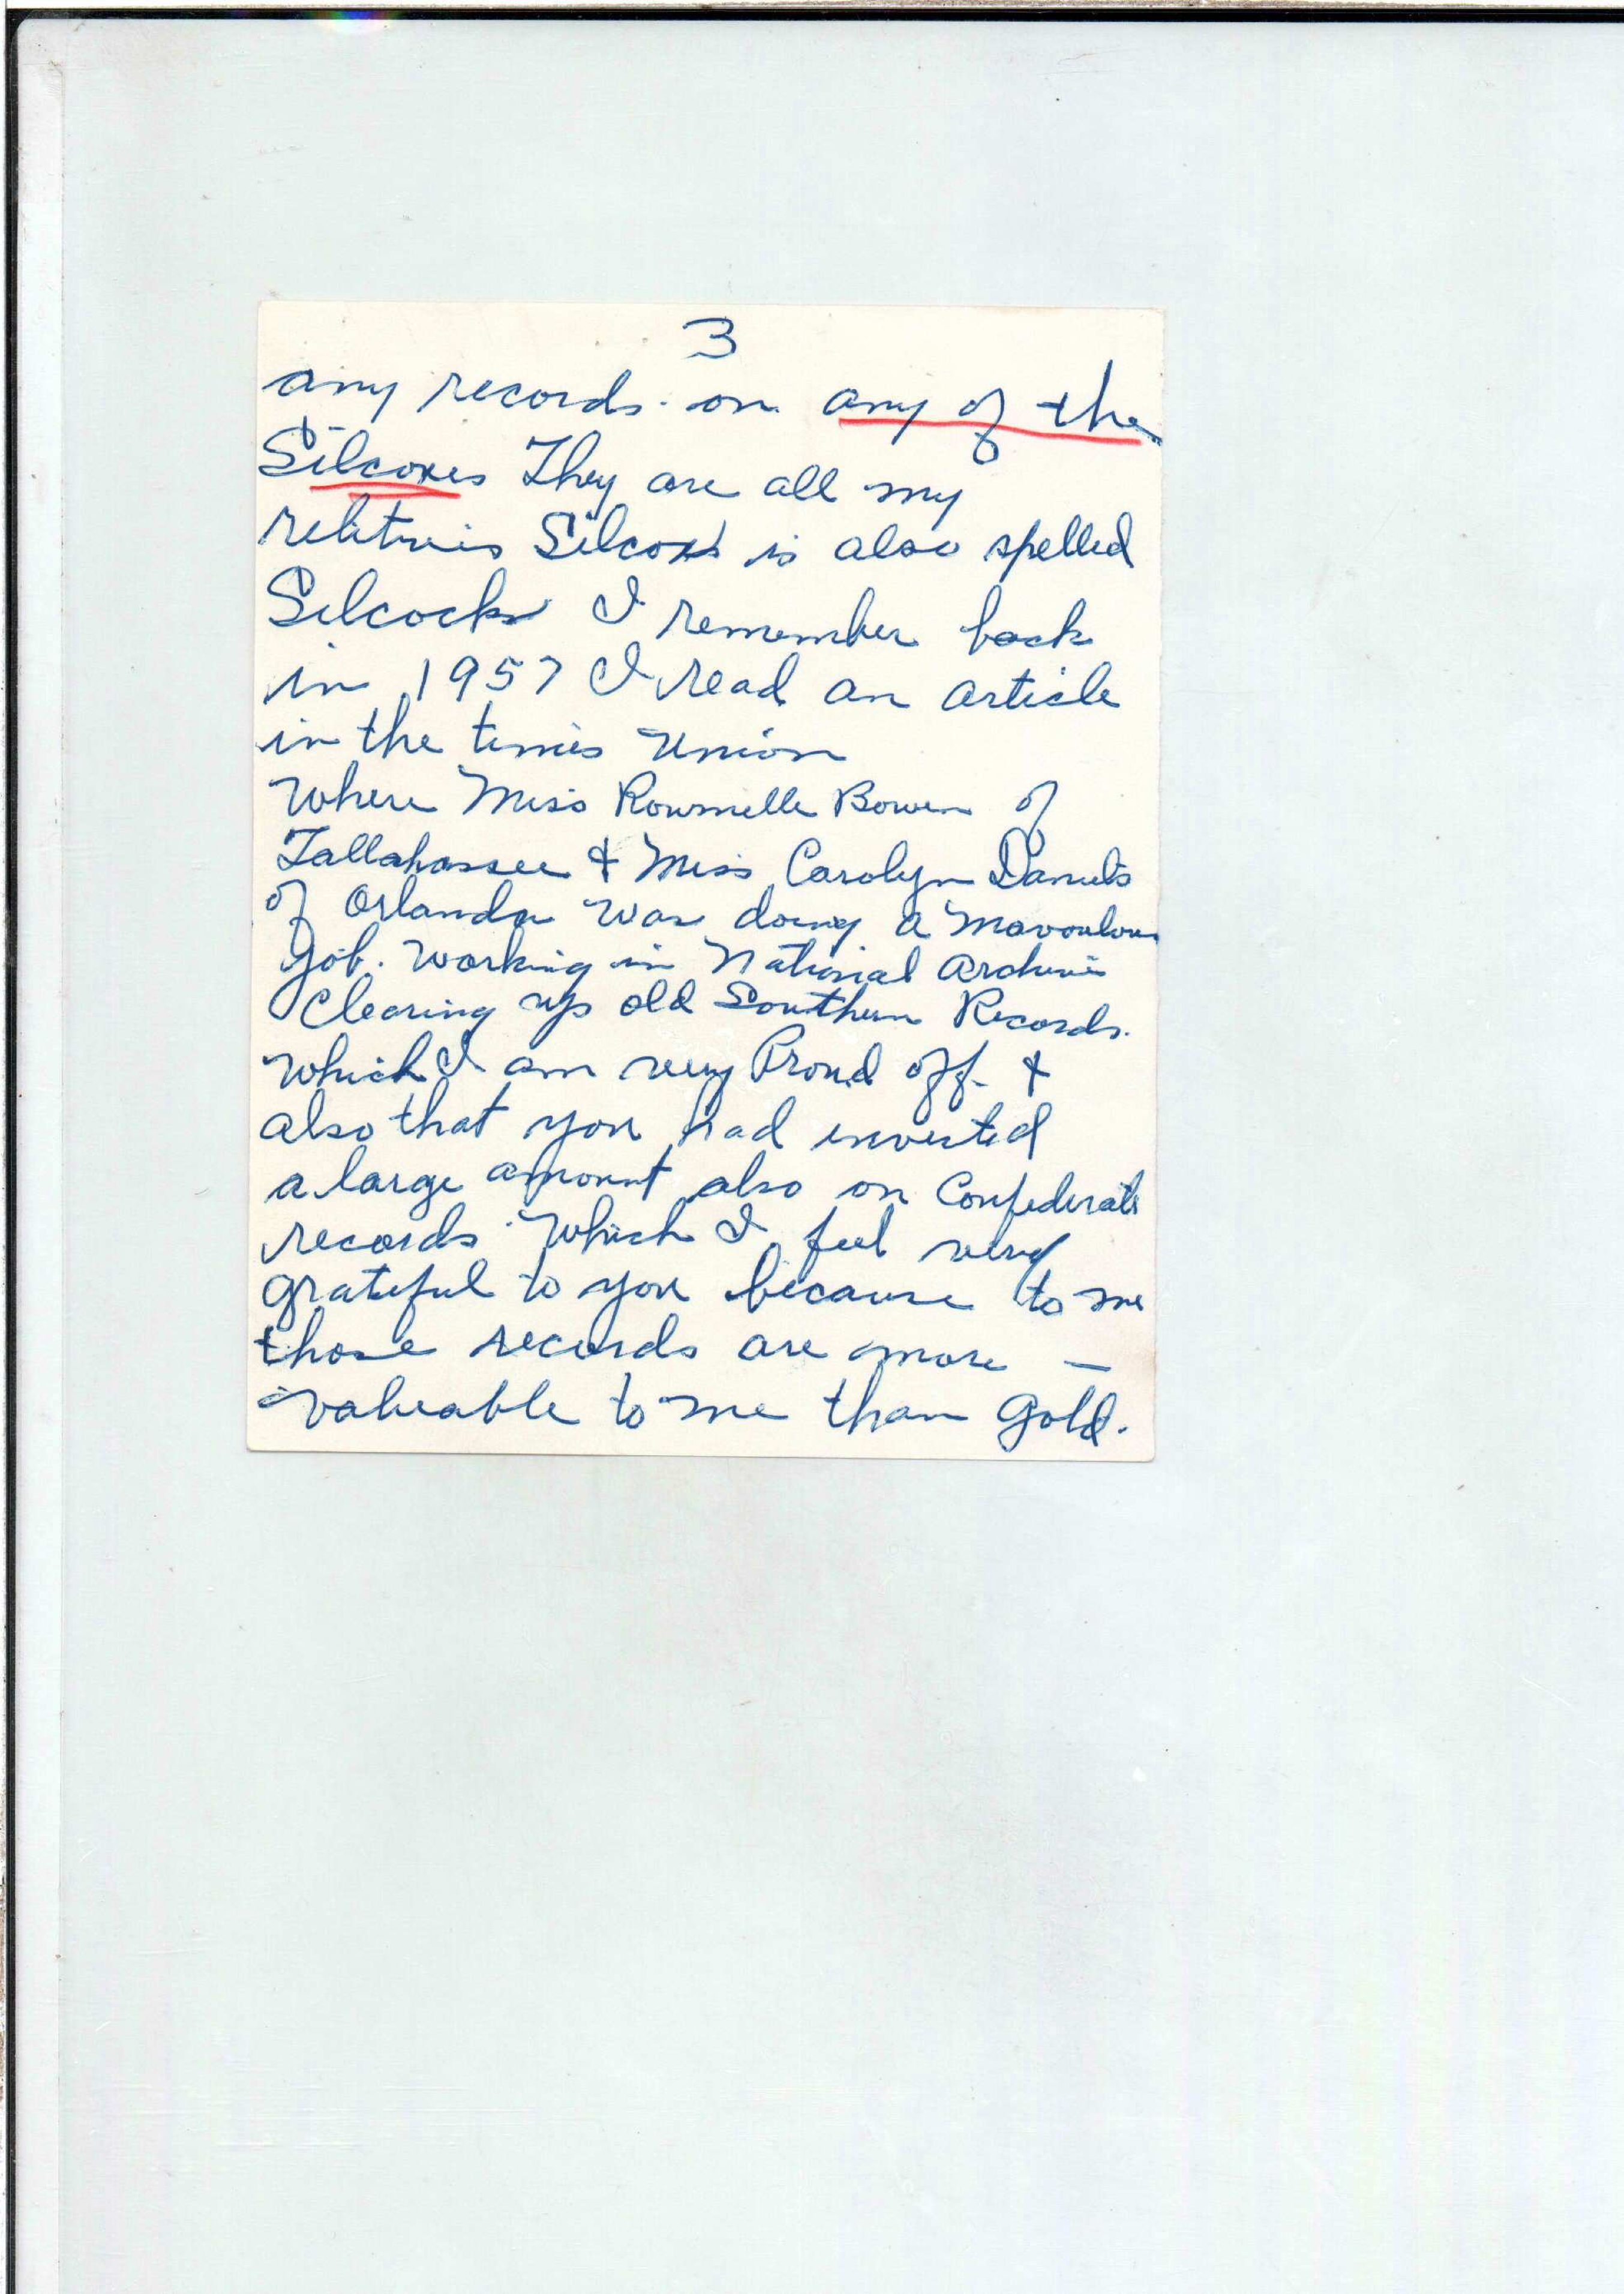 3
any records on any of the
Silcoxes They are all my
relitives Silcox is also spelled
Silcocks I remember back
in 1957 I read an article
in the times Union
Where Miss Bowen of
Tallahassee & Miss Carolyn Daniels
of Orlando was doing a
Job. Working in National Archives
Clearing up old Southern Records.
Which I am very Proud off. &
also that you had invested
a large amount also on Confederate
records Which I feel very
grateful to you because to me
those records are more —
valueable to me than gold.